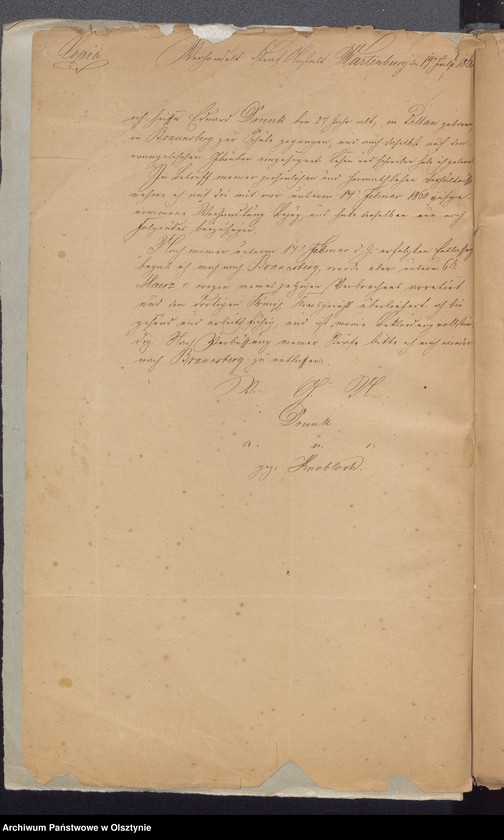 Copia
Verhandelt Straf Anstalt Wartenburg d 19 July 186
ich heiße Eduard Drunk bin 27 Jahr alt, in Pillau geboren
in Braunsberg zur Schule gegangen, und auch daselbst auf den
evangelischen Glauben eingesegnet. Lesen und Schreiben habe ich gelernt
In Betreff meiner persönlichen und heimathlichen Verhältnisse
nehme ich auf die mit mir unterm 14' Februar 1860 aufge-
nommene Verhandlung Bezug, und habe derselben nur noch
Folgendes beizufügen.
Nach meiner unterm 17' Februar d. J. erfolgten Entlassung
begab ich mich nach Braunsberg, wurde aber unterm 6t
Maerz c wegen meines jetzigen Verbrechens arretirt
und dem dortigen Königl Kreisgericht überliefert. ich bin
gesund und arbeitsfähig, und ist meine Bekleidung vollstän
dig. Nach Verbüßung meiner Strafe bitte ich mich wieder
nach Braunsberg zu entlassen.
V. G. U.
Drunk
a. u. s.
gez. Knobloch.
Archiwum Państwowe w Olsztynie